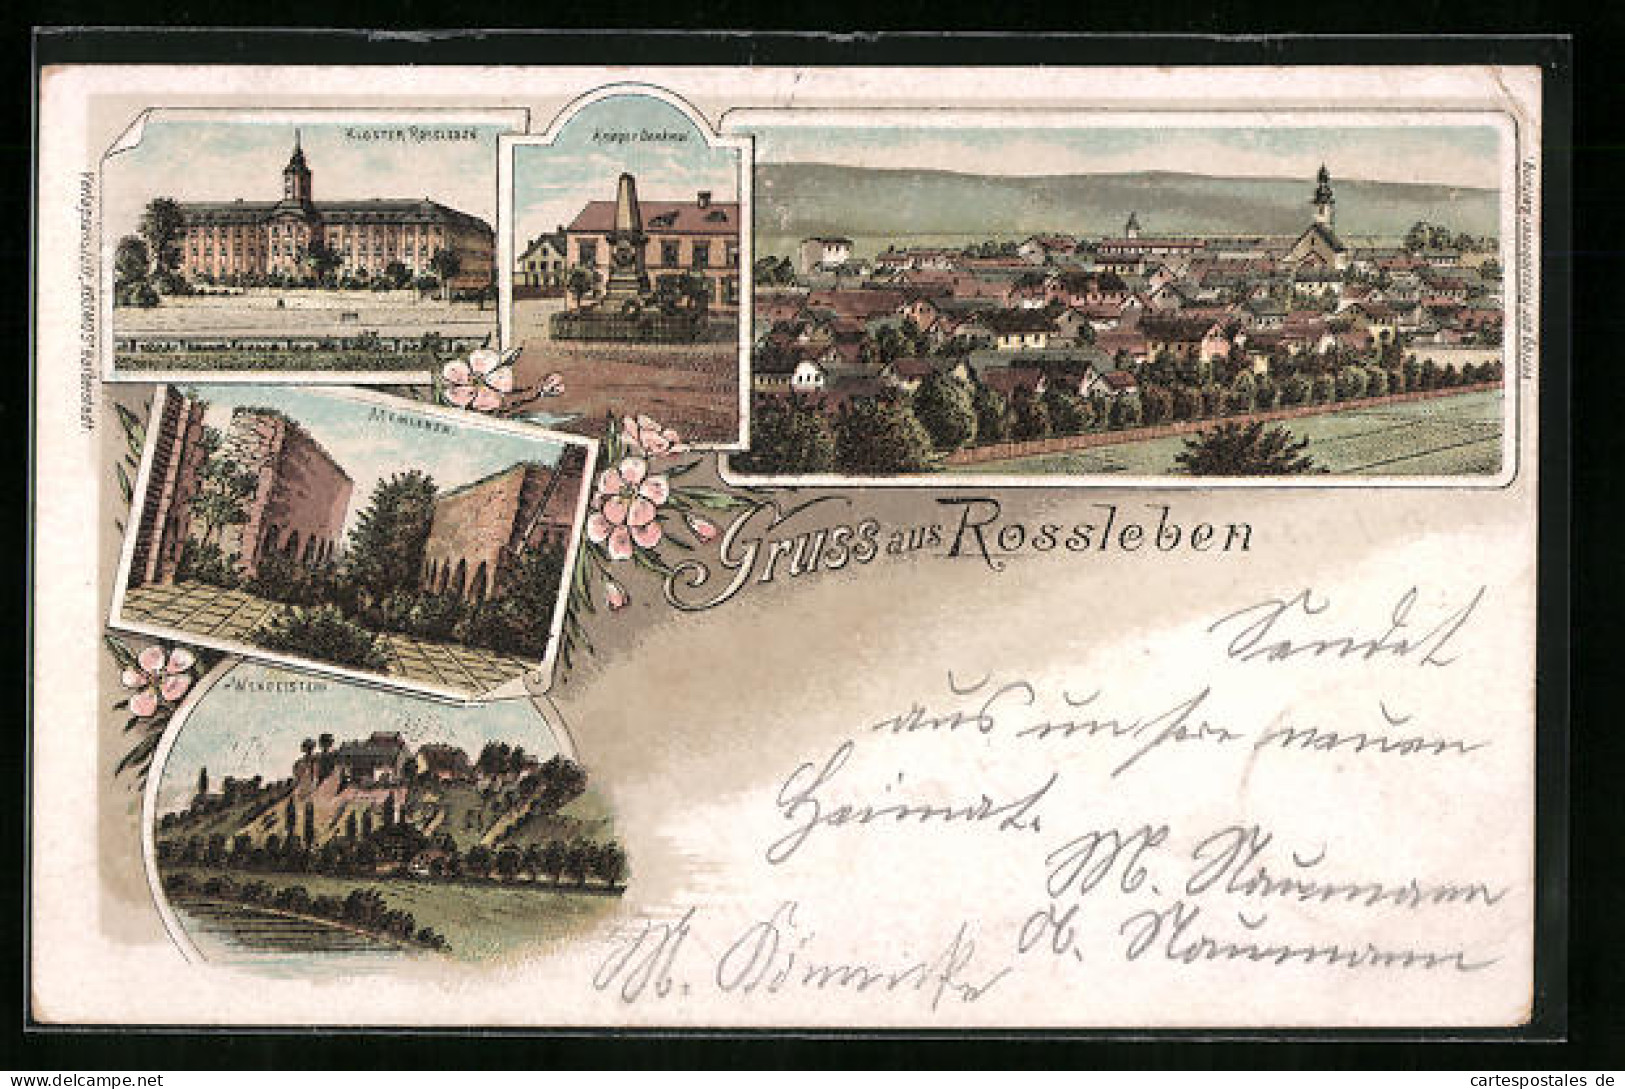 Kloster Rossleben
Krieger Denkmal
Memleben.
Wendelstein
Gruss aus Rossleben
Sendet
aus unsere neuen
Heimat.
M. Naumann
A. Naumann
M.
cartespostales de